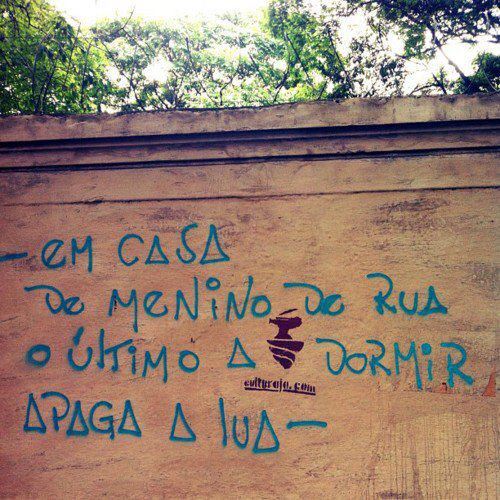 - EM CASA
DE MENINO DE RUA
O ÚLTIMO A DORMIR
culturaja.com
APAGA A LUA -